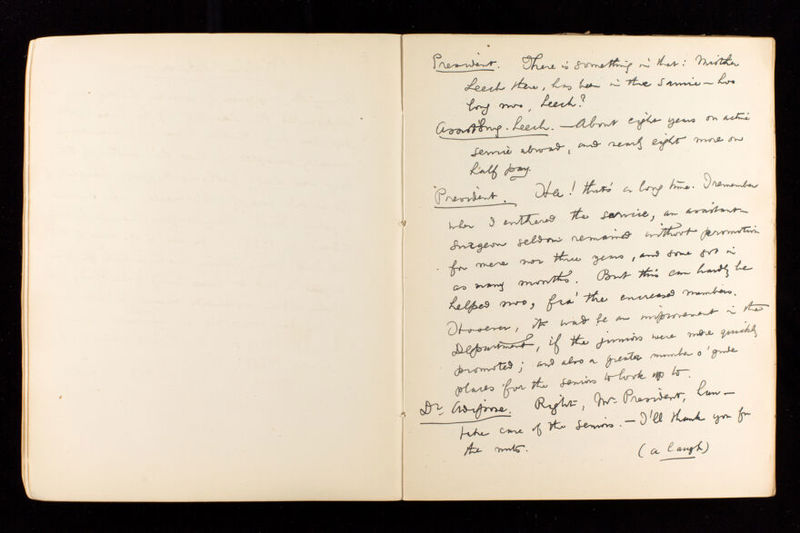 President. There is something in that: Mister
Leech there, has been in the service — hoo
long noo, Leech?
Assist. Surg. Leech. — About eight years on active
service abroad, and nearly eight more on
half pay.
President. Ha! that's a long time. I remember
when I entered the service, an assistant
surgeon seldom remained without promotion
for mere nor three years, and some got in
as many months. But this can hardly be
helped noo, fra' the encreased numbers.
However, it wad be an improvement in the
Department, if the juniors were more quickly
promoted; and also a greater number o' gude
places for the seniors to look up to.
Dr. Adipose. Right, Mr. President,
take care of the seniors. — I'll thank you for
the nuts. (a laugh)